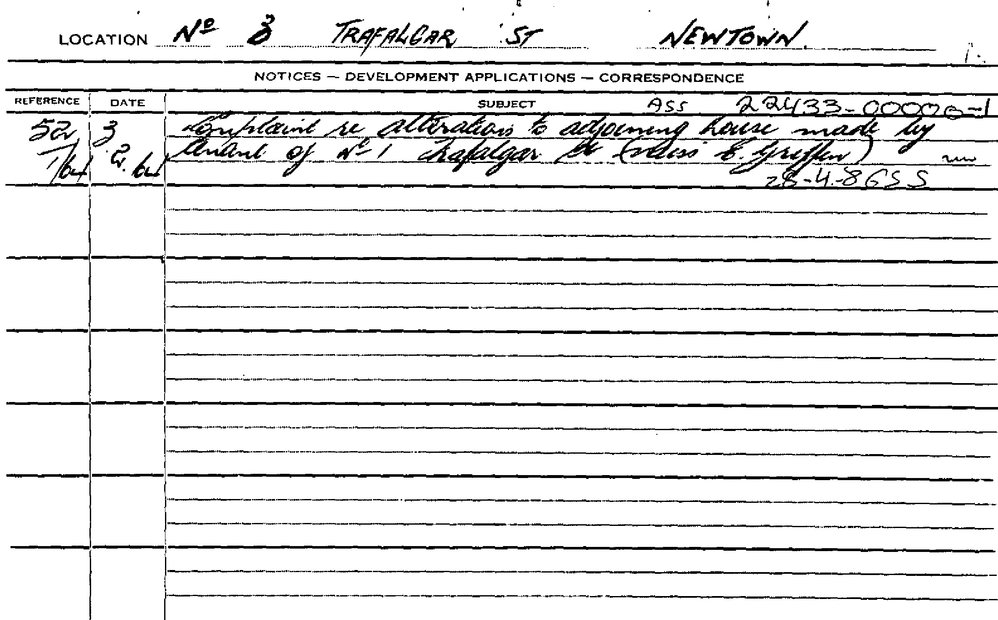 LOCATION Nº 3 TRAFALGAR ST NEWTOWN.
NOTICES — DEVELOPMENT APPLICATIONS — CORRESPONDENCE
REFERENCE DATE SUBJECT ASS 22433-00000-1
52 3 Complaint re alterations to adjoining house made by
1/64 2.64 tenant of Nº 1 Trafalgar St (Miss E. Griffen)
28-4-86 SS